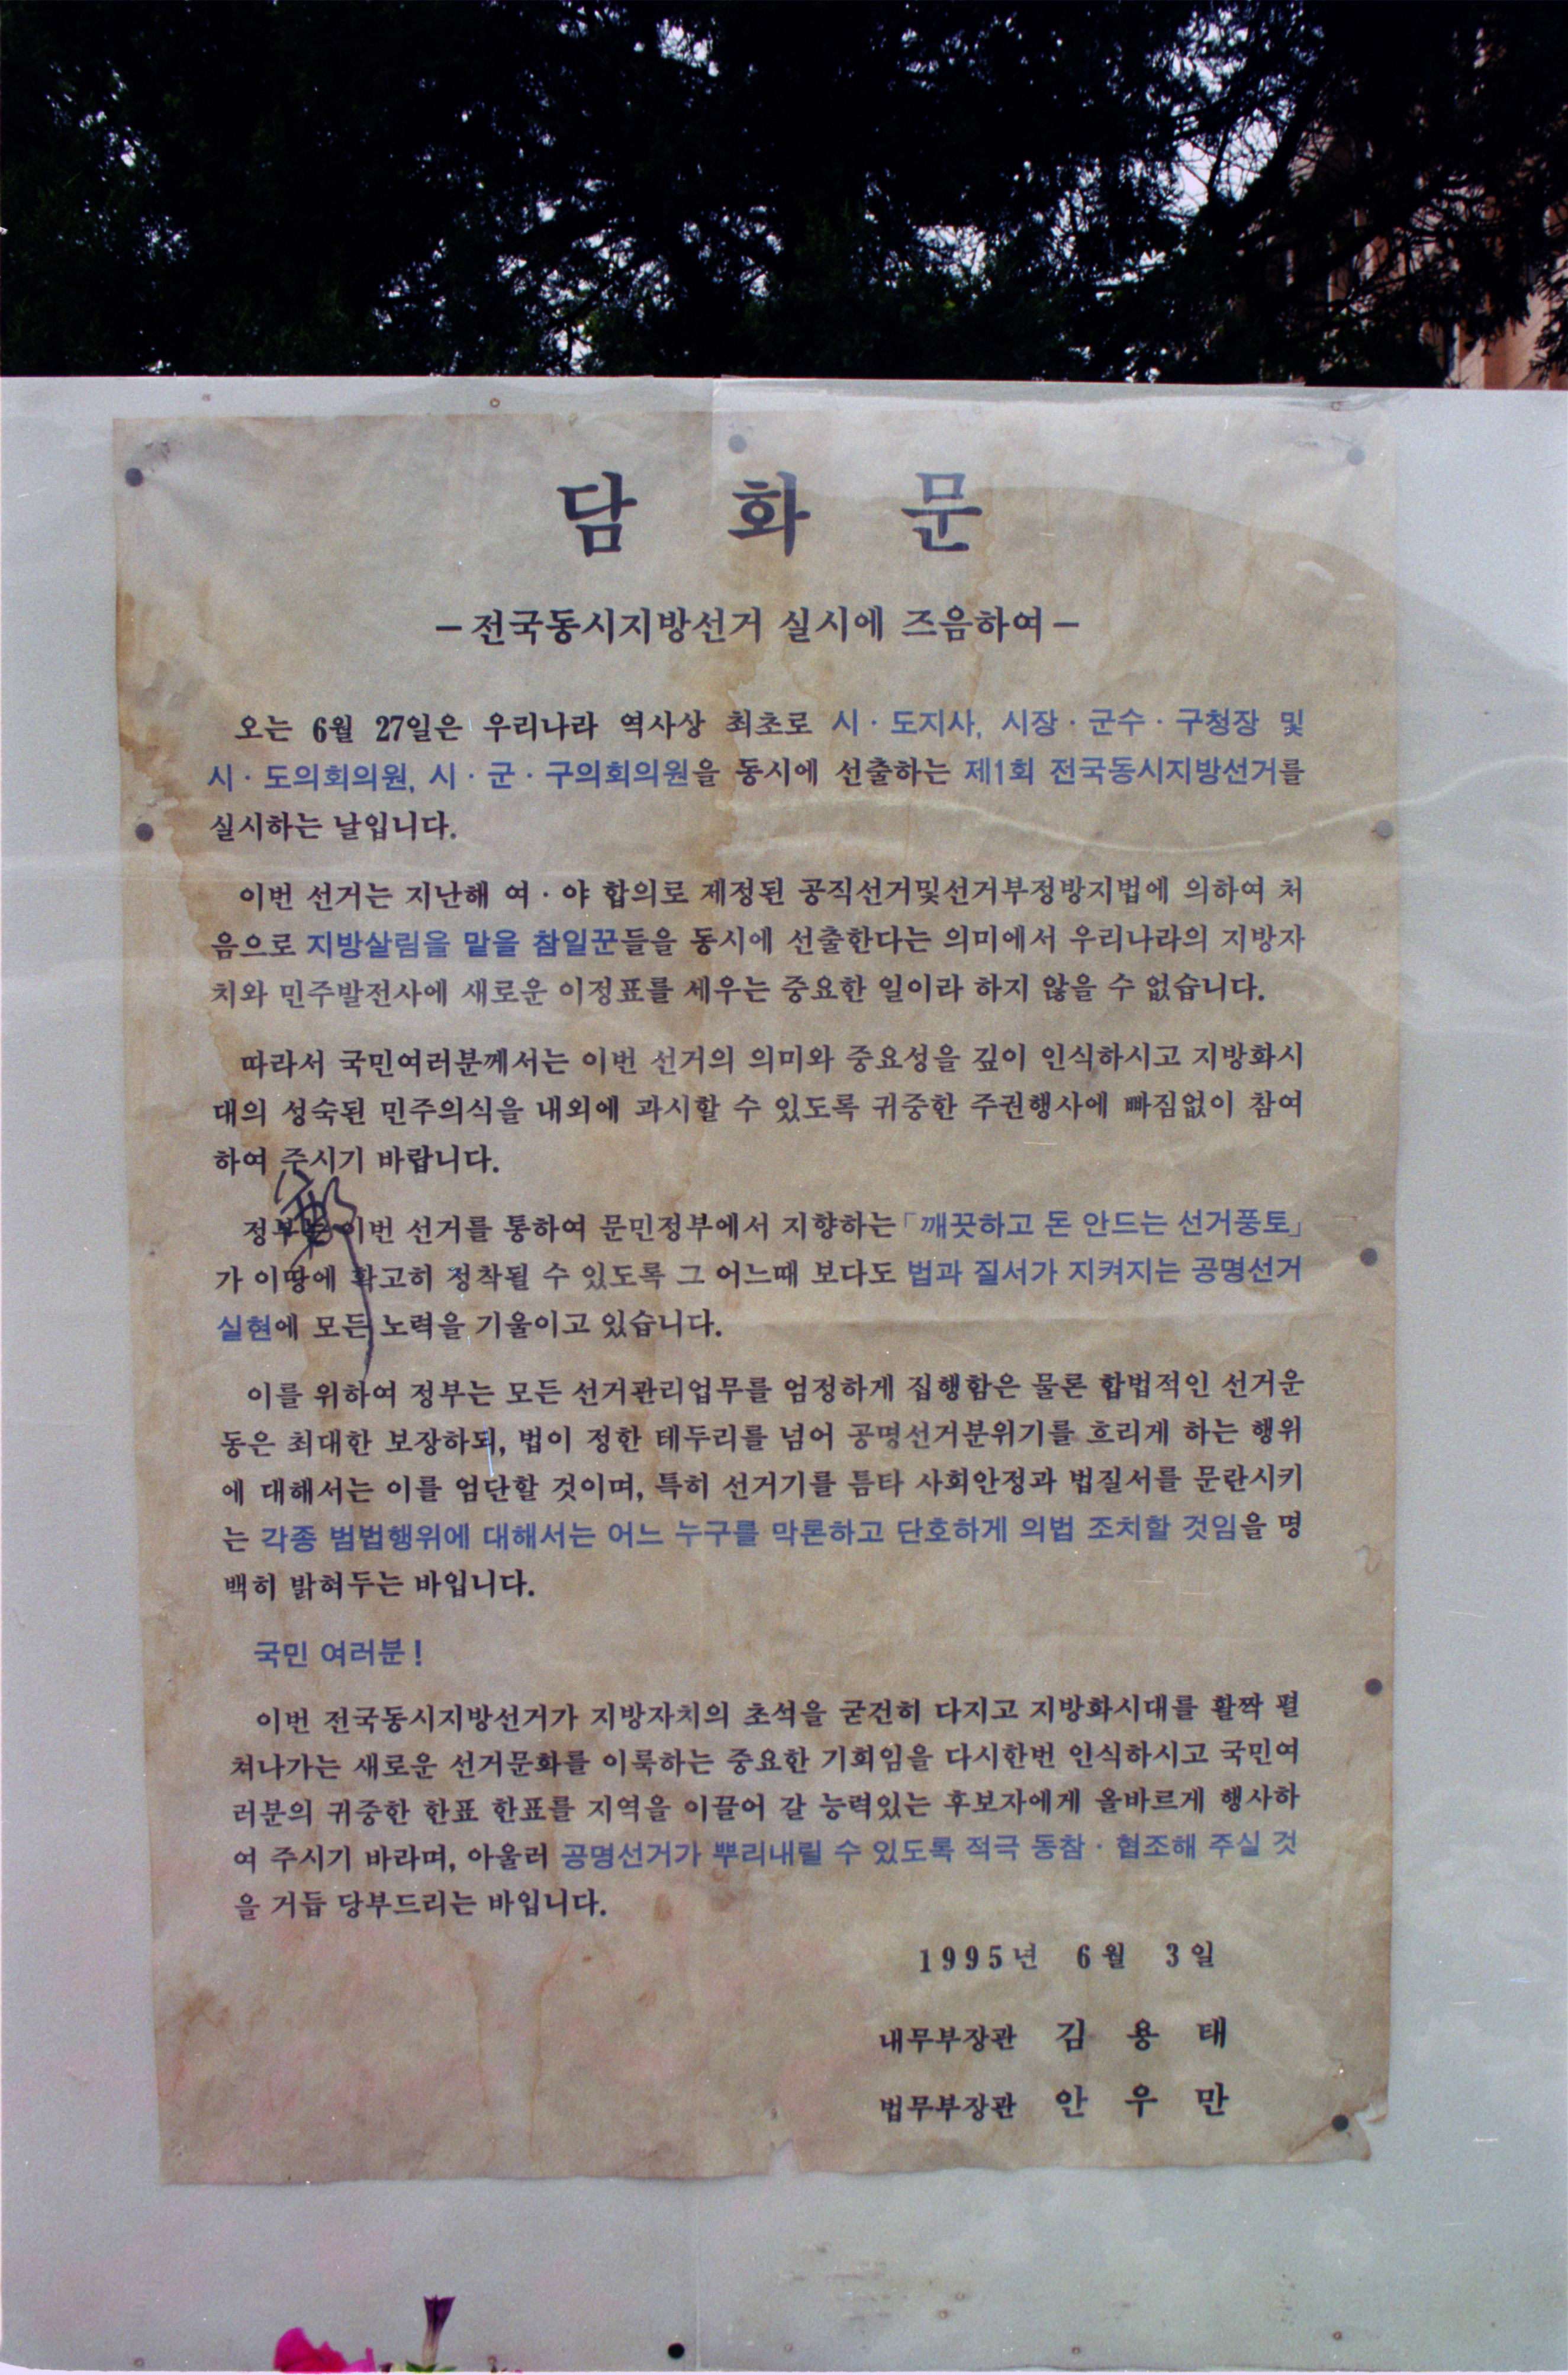 담 화 문
－전국동시지방선거 실시에 즈음하여－
오는 6월 27일은 우리나라 역사상 최초로 시·도지사, 시장·군수·구청장 및
시·도의회의원, 시·군·구의회의원을 동시에 선출하는 제1회 전국동시지방선거를
실시하는 날입니다.
이번 선거는 지난해 여·야 합의로 제정된 공직선거및선거부정방지법에 의하여 처
음으로 지방살림을 맡을 참일꾼들을 동시에 선출한다는 의미에서 우리나라의 지방자
치와 민주발전사에 새로운 이정표를 세우는 중요한 일이라 하지 않을 수 없습니다.
따라서 국민여러분께서는 이번 선거의 의미와 중요성을 깊이 인식하시고 지방화시
대의 성숙된 민주의식을 내외에 과시할 수 있도록 귀중한 주권행사에 빠짐없이 참여
하여 주시기 바랍니다.
정부는 이번 선거를 통하여 문민정부에서 지향하는「깨끗하고 돈 안드는 선거풍토」
가 이땅에 확고히 정착될 수 있도록 그 어느때 보다도 법과 질서가 지켜지는 공명선거
실현에 모든 노력을 기울이고 있습니다.
이를 위하여 정부는 모든 선거관리업무를 엄정하게 집행함은 물론 합법적인 선거운
동은 최대한 보장하되, 법이 정한 테두리를 넘어 공명선거분위기를 흐리게 하는 행위
에 대해서는 이를 엄단할 것이며, 특히 선거기를 틈타 사회안정과 법질서를 문란시키
는 각종 범법행위에 대해서는 어느 누구를 막론하고 단호하게 의법 조치할 것임을 명
백히 밝혀두는 바입니다.
국민 여러분!
이번 전국동시지방선거가 지방자치의 초석을 굳건히 다지고 지방화시대를 활짝 펼
쳐나가는 새로운 선거문화를 이룩하는 중요한 기회임을 다시한번 인식하시고 국민여
러분의 귀중한 한표 한표를 지역을 이끌어 갈 능력있는 후보자에게 올바르게 행사하
여 주시기 바라며, 아울러 공명선거가 뿌리내릴 수 있도록 적극 동참·협조해 주실 것
을 거듭 당부드리는 바입니다.
1995년 6월 3일
내무부장관 김 용 태
법무부장관 안 우 만